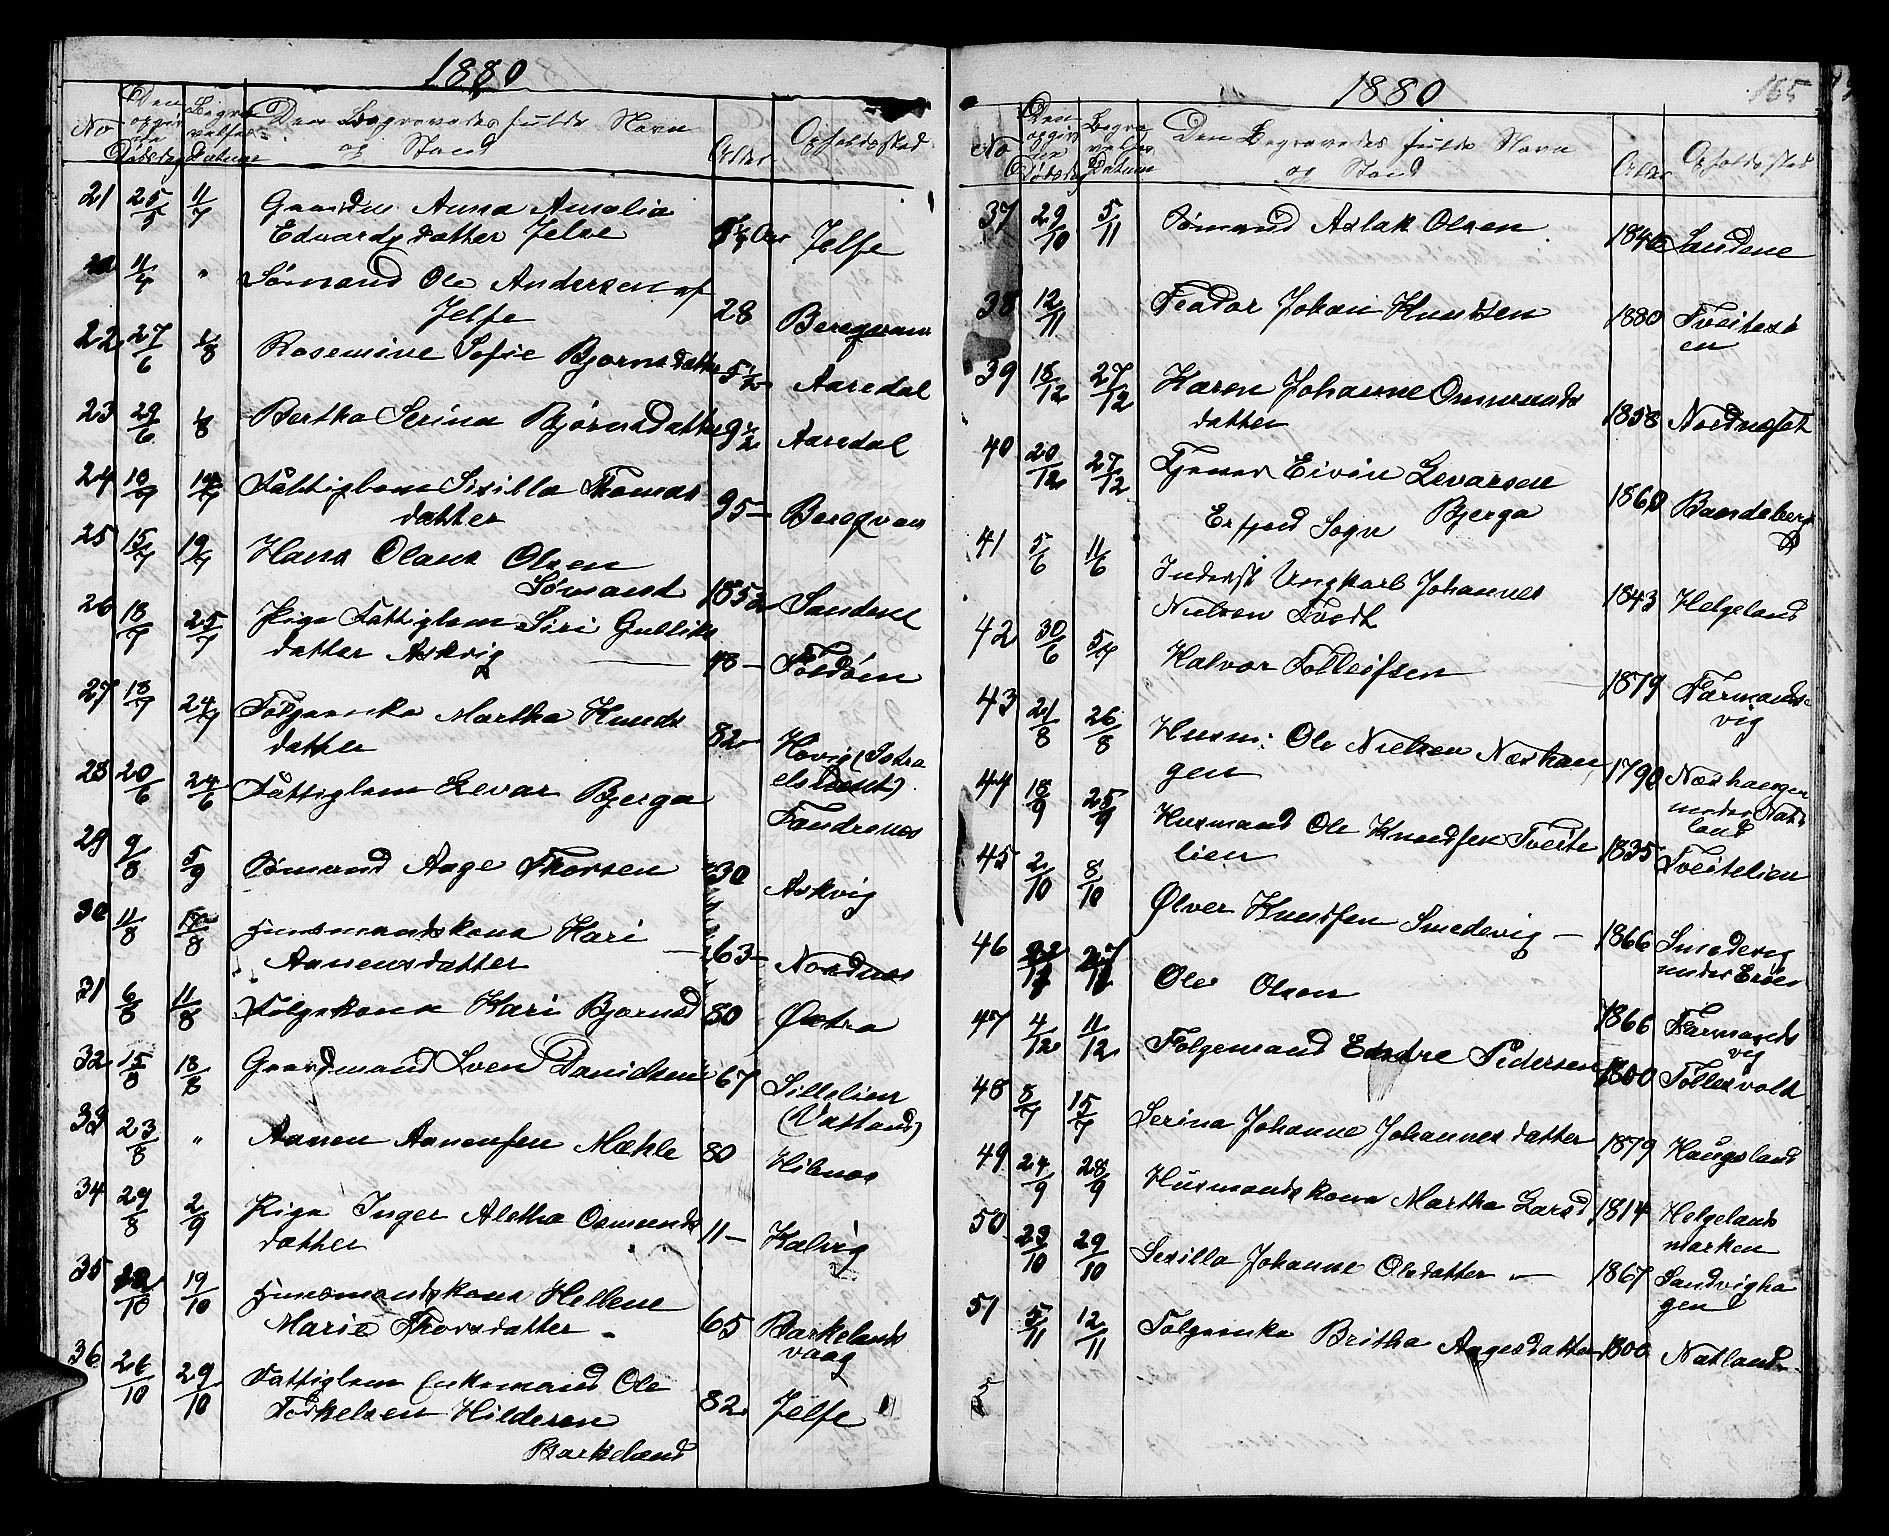 1880
No Den opgivne Dødsdag Begravelses Datum Den Begravedes fulde Navn og Stand Alder Opholdssted
21 25/5 11/7 Anna Amalia
Edvardsdatter Jelse Jelse
11/4 " Sømand Ole Andersen af
Jelse 28
22 27/6 1/8 Rosemine Sofie Bjørnsdatter 5½ Aaredal
23 29/6 1/8 Bertha Serina Bjørnsdatter 9½ Aaredal
24 Fattiglem Sisilla Thomas
datter 95
25 15/7 19/7 Hans Olaus Olsen
Sømand 1852 Sandene
26 18/7 25/7 Pige Fattiglem Siri Gulliks
datter Askvig 48 Foldøen
27 18/7 24/7 Martha Knuds
datter 82 Hovig
28 20/6 24/6 Fattiglem Levar Bjerga
29 9/8 5/9 Sømand Aage Thorsen 30 Askvig
30 11/8 Huusmandskone Kari
Aanensdatter 63 Nordnes
31 6/8 11/8 Følgekone Kari Bjørnsd 80 Østrø
32 15/8 18/8 Gaardmand Sven Davidsen 67 Lillelien
(Vatland)
33 23/8 " Aanen Aanensen Mæhle 80 Hibnes
34 29/8 2/9 Pige Inger Alethe Osmunds
datter 11 Kalvig
35 19/10 Huusmandskone Hellene
Marie Thorsdatter 65 Barkelands
vaag
36 26/10 29/10 Fattiglem Enkemand Ole
Torkelsen Hilderen 82 Jelse
Barkeland
1880 165
No Den opgivne Dødsdag Begravelses Datum Den Begravedes fulde Navn og Stand Alder Opholdssted
37 29/10 5/11 Sømand Aslak Olsen 1846 Sandene
38 12/11 Feador Johan Knudsen 1880
39 18/12 27/12 Karen Johanne Osmunds
datter 1858
40 20/12 27/12 Tjener Eivin Levarsen
Bjerga 1860
Erfjord Sogn
41 5/6 11/6 Inderst Ungkarl Johannes
Nielsen Tvedt 1843 Helgeland
42 30/6 5/7 Halvor Tolleifsen 1879 Farmands-
vig
43 21/8 26/8 Husm: Ole Nielsen Næshau
gen 1790 Næshaugen
under Nat
land
44 18/9 25/9 Husmand Ole Knudsen Tveite
lien 1835 Tveitelien
45 2/10 8/10 Ølver Knudsen Smedevig 1866 Smedevig
under
46 Ole Olsen 1866 Farmands
vig
47 4/12 11/12 Følgemand Endre Pedersen 1800 Tollesvold
48 8/7 15/7 Serina Johanne Johannesdatter 1879 Haugsland
49 24/9 28/9 Husmandskone Martha Larsd 1814 Helgelands
marken
50 23/10 29/10 Sesilla Johanne Olsdatter 1867 Sandvigha
gen
51 5/11 12/11 Britha Aagesdatter 1800 Natland
5